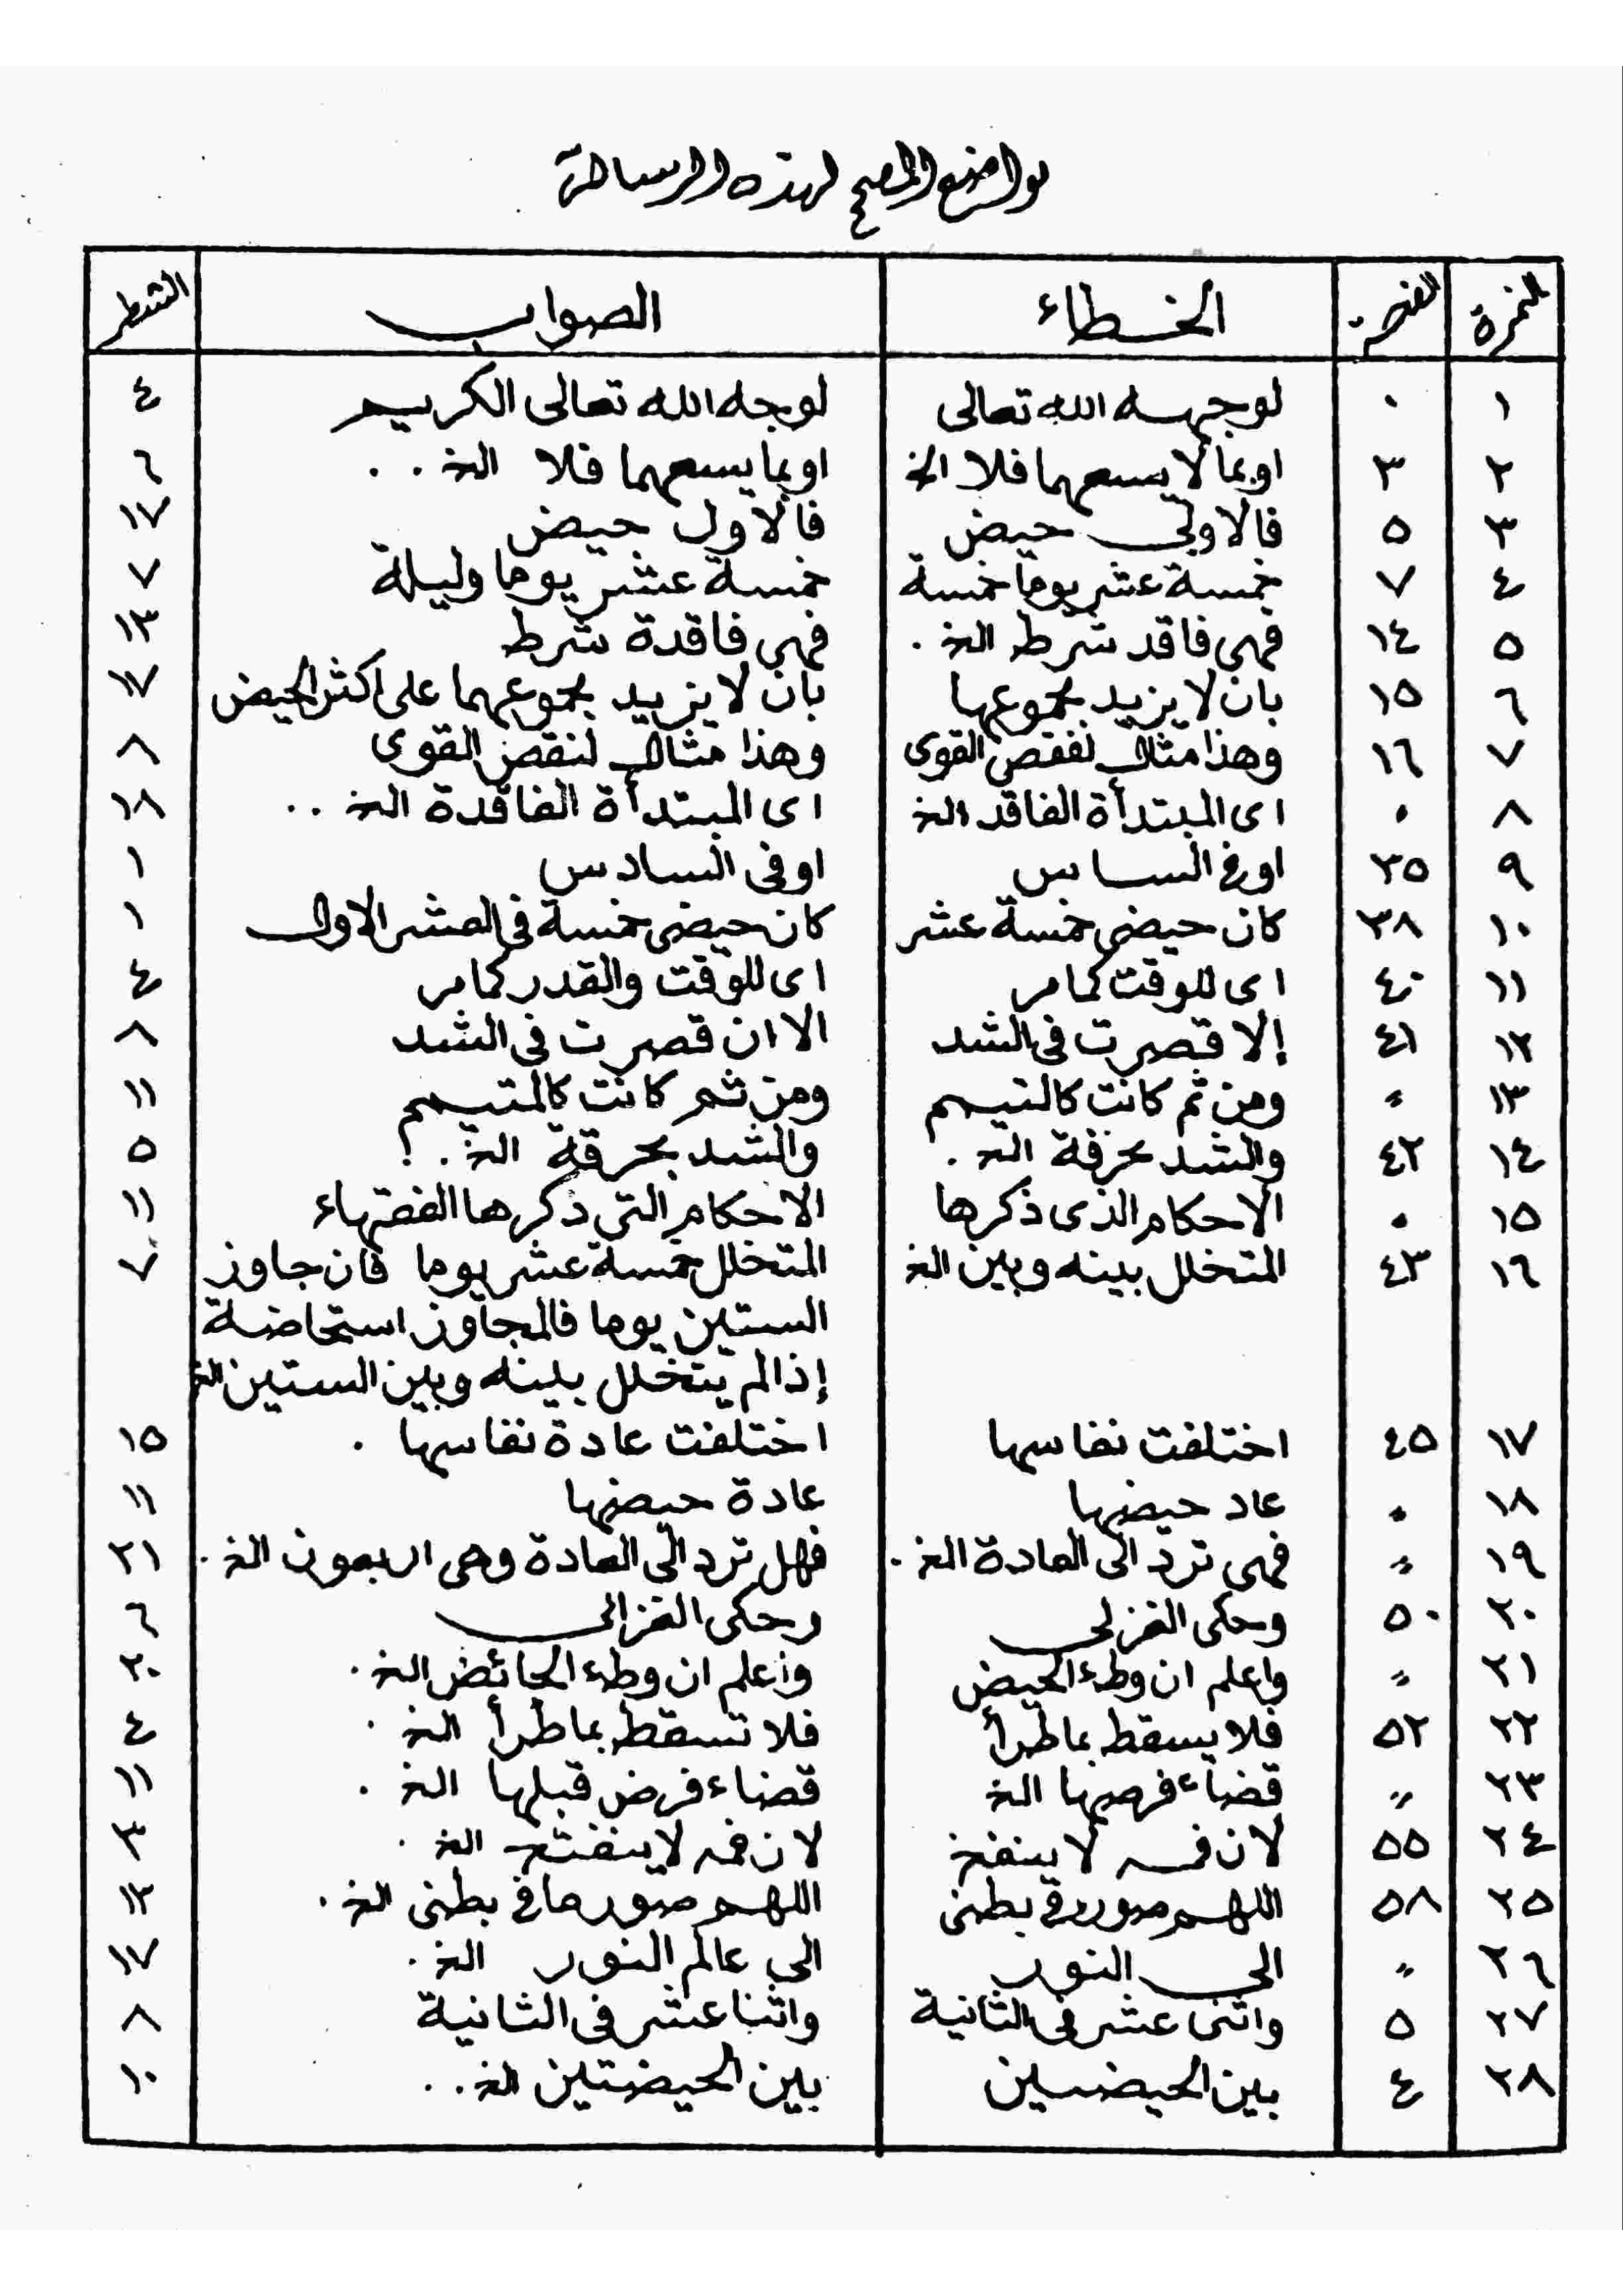 مواضع المصحح لهذه الرسالة
النمرة الصفحة الخطاء الصواب السطر
١ ٠ لوجهه الله تعالى لوجه الله تعالى الكريم ٤
٢ ٣ او بما لا يسعهما فلا الخ او بما يسعهما فلا الخ . . ٦
٣ ٥ فالاولى حيض فالاول حيض ١٧
٤ ٧ خمسة عشر يوما خمسة خمسة عشر يوما وليلة ٧
٥ ١٤ فهى فاقد شرط الخ . فهى فاقدة شرط ١٣
٦ ١٥ بان لا يزيد بجموعها بان لا يزيد بجموعهما على اكثر الحيض ١٧
٧ ١٦ وهذا مثال لفقص القوى وهذا مثال لنقص القوى ٨
٨ ٠ اى المبتدأة الفاقد الخ اى المبتدأة الفاقدة الخ . . ١٨
٩ ٣٥ اوفى الساس اوفى السادس ١
١٠ ٣٨ كان حيضى خمسة عشر كان حيضى خمسة فى العشر الاول ١
١١ ٤٠ اى للوقت كما مر اى للوقت والقدر كما مر ٤
١٢ ٤١ إلا قصرت فى الشد الا ان قصرت فى الشد ٨
١٣ 〃 ومن ثم كانت كالتيمم ومن ثم كانت كالمتيمم ١١
١٤ ٤٢ والشد بحرفة الخ . والشد بحرقة الخ . ! ٥
١٥ ٠ الاحكام الذى ذكرها الاحكام التى ذكرها الفقهاء ١١
١٦ ٤٣ المتخلل بينه وبين الخ المتخلل خمسة عشر يوما فان جاوز ٧
الستين يوما فالمجاوز استحاضة
إذا لم يتخلل بينه وبين الستين الخ
١٧ ٤٥ اختلفت نفاسها اختلفت عادة نفاسها . ١٥
١٨ ٠ عاد حيضها عادة حيضها ١١
١٩ 〃 فهى ترد الى العادة الخ . فهل ترد الى العادة وهى اربعون الخ . ٢١
٢٠ ٥٠ وحكى الغزلى وحكى الغزالى ٦
٢١ 〃 واعلم ان وطء الحيض واعلم ان وطء الحائض الخ . ٢٠
٢٢ ٥٢ فلا يسقط بما طرأ فلا تسقط بما طرأ الخ . ٤
٢٣ 〃 قضاء فرضها الخ قضاء فرض قبلها الخ . ١١
٢٤ ٥٥ لان فمه لا ينفخ لان فمه لا ينفتح الخ . ٣
٢٥ ٥٨ اللهم صور فى بطنى اللهم صور ما فى بطنى الخ . ١٢
٢٦ 〃 الى النور الى عالم النور الخ . ١٧
٢٧ ٥ واثنى عشر فى الثانية واثنا عشر فى الثانية ٨
٢٨ ٤ بين الحيضين بين الحيضتين الخ . . ١٠